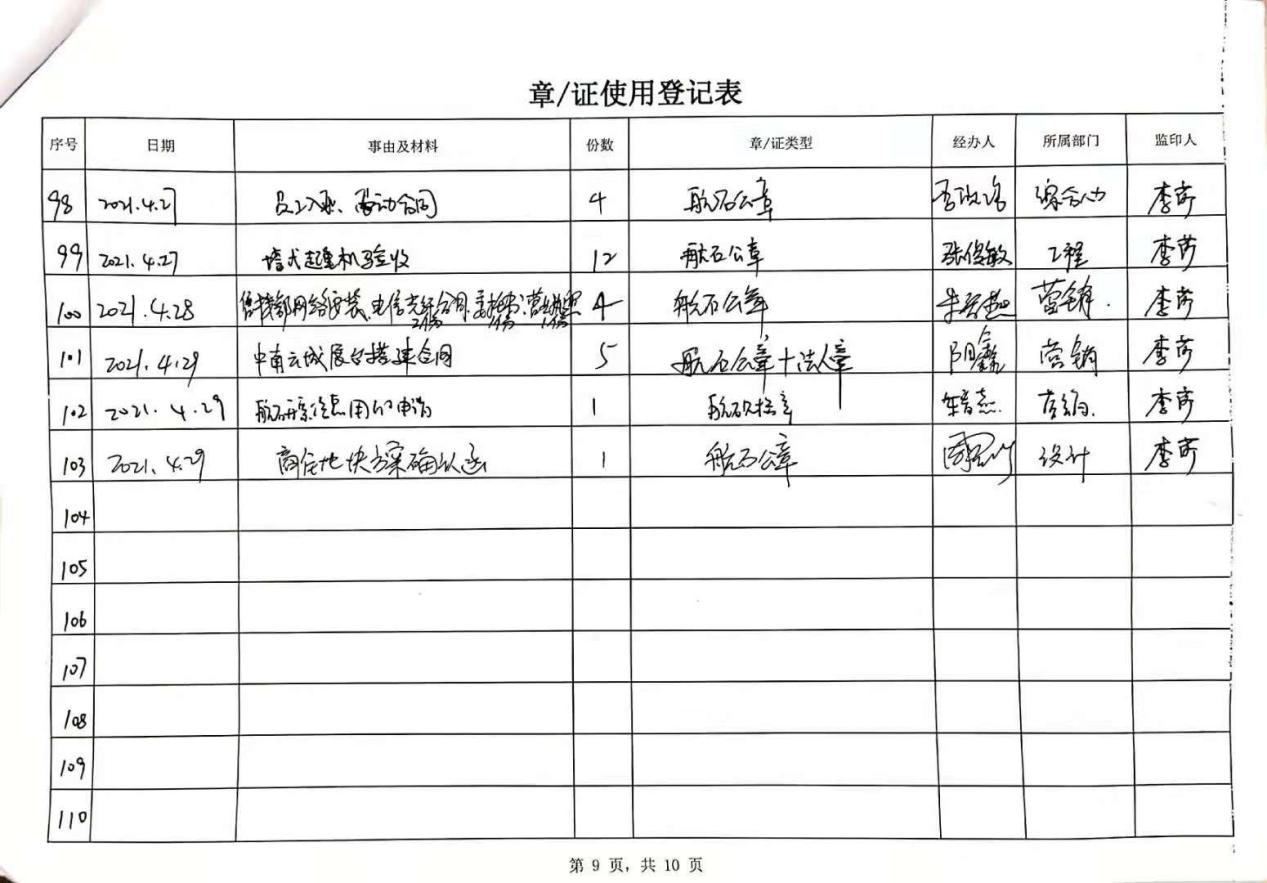 章/证使用登记表
序号 日期 事由及材料 份数 章/证类型 经办人 所属部门 监印人
98 2021.4.27 员工入职、劳动合同 4 航石公章 综合办 李莎
99 2021.4.27 塔式起重机验收 12 航石公章 张俊敏 工程 李莎
100 2021.4.28 售楼部网络安装、电信光纤合同、委托书、营业执照 4 航石公章 营销. 李莎
2份 1份 1份
101 2021.4.29 中南云城展台搭建合同 5 航石公章+法人章 阴鑫 营销 李莎
102 2021.4.29 1 营销. 李莎
103 2021.4.29 商住地块方案确认函 1 航石公章 设计 李莎
104
105
106
107
108
109
110
第 9 页, 共 10 页